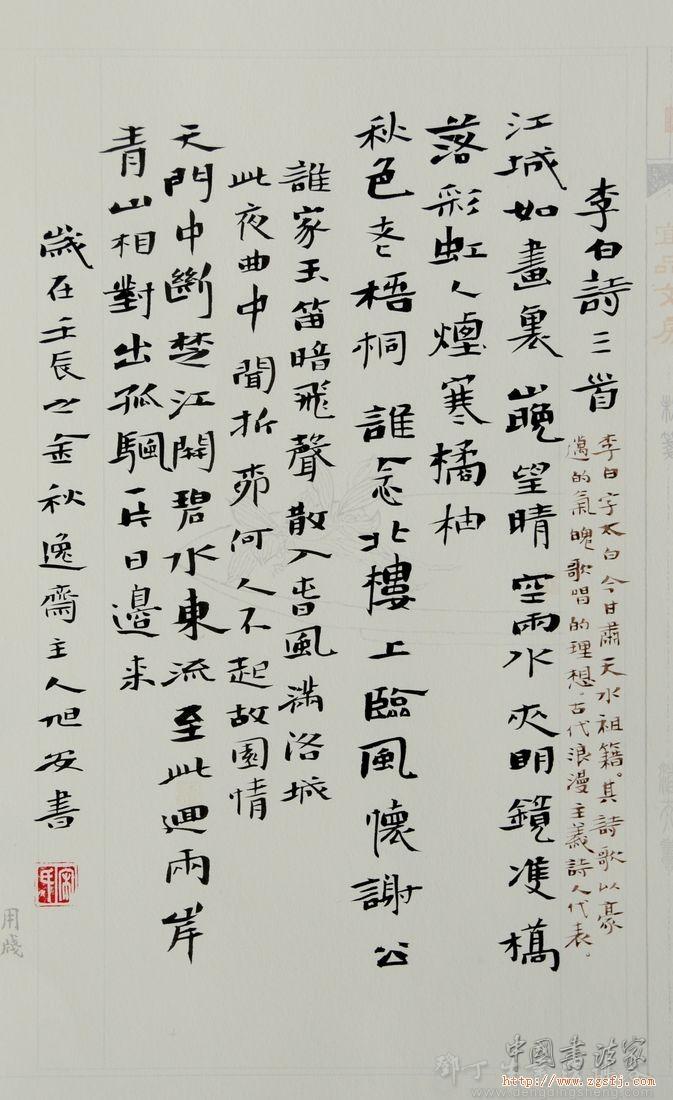 李白詩三首
李白字太白今甘肅天水祖籍。其詩歌以豪
邁的氣魄歌唱的理想。古代浪漫主義詩人代表。
江城如畫裏山晚望晴空兩水夾明鏡雙橋
落彩虹人煙寒橘柚
秋色老梧桐誰念北樓上臨風懷謝公
誰家玉笛暗飛聲散入春風滿洛城
此夜曲中聞折柳何人不起故園情
天門中斷楚江開碧水東流至此迴兩岸
青山相對出孤帆一片日邊来
歲在壬辰之金秋逸齋主人旭書
宜品文房
用牋
中國書法家
http://www.zgsfj.com
www.dengdingsheng.com